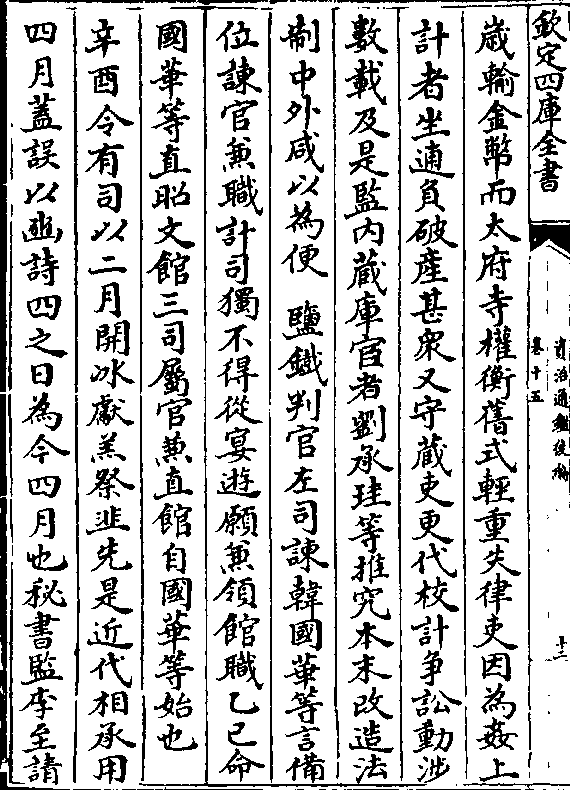 欽定四庫全書
資治通鑑後編
卷十五
十二
歲輸金幣而太府寺權衡舊式輕重失律吏因為姦上
計者坐逋負破產甚衆又守藏吏更代校計爭訟動涉
數載及是監内藏庫宦者劉承珪等推究本末改造法
制中外咸以為便　鹽鐵判官左司諫韓國華等言備
位諫官兼職計司獨不得從宴遊願兼領館職乙巳命
國華等直昭文館三司屬官兼直館自國華等始也
辛酉令有司以二月開冰獻羔祭韭先是近代相承用
四月蓋誤以豳詩四之日為今四月也秘書監李至請